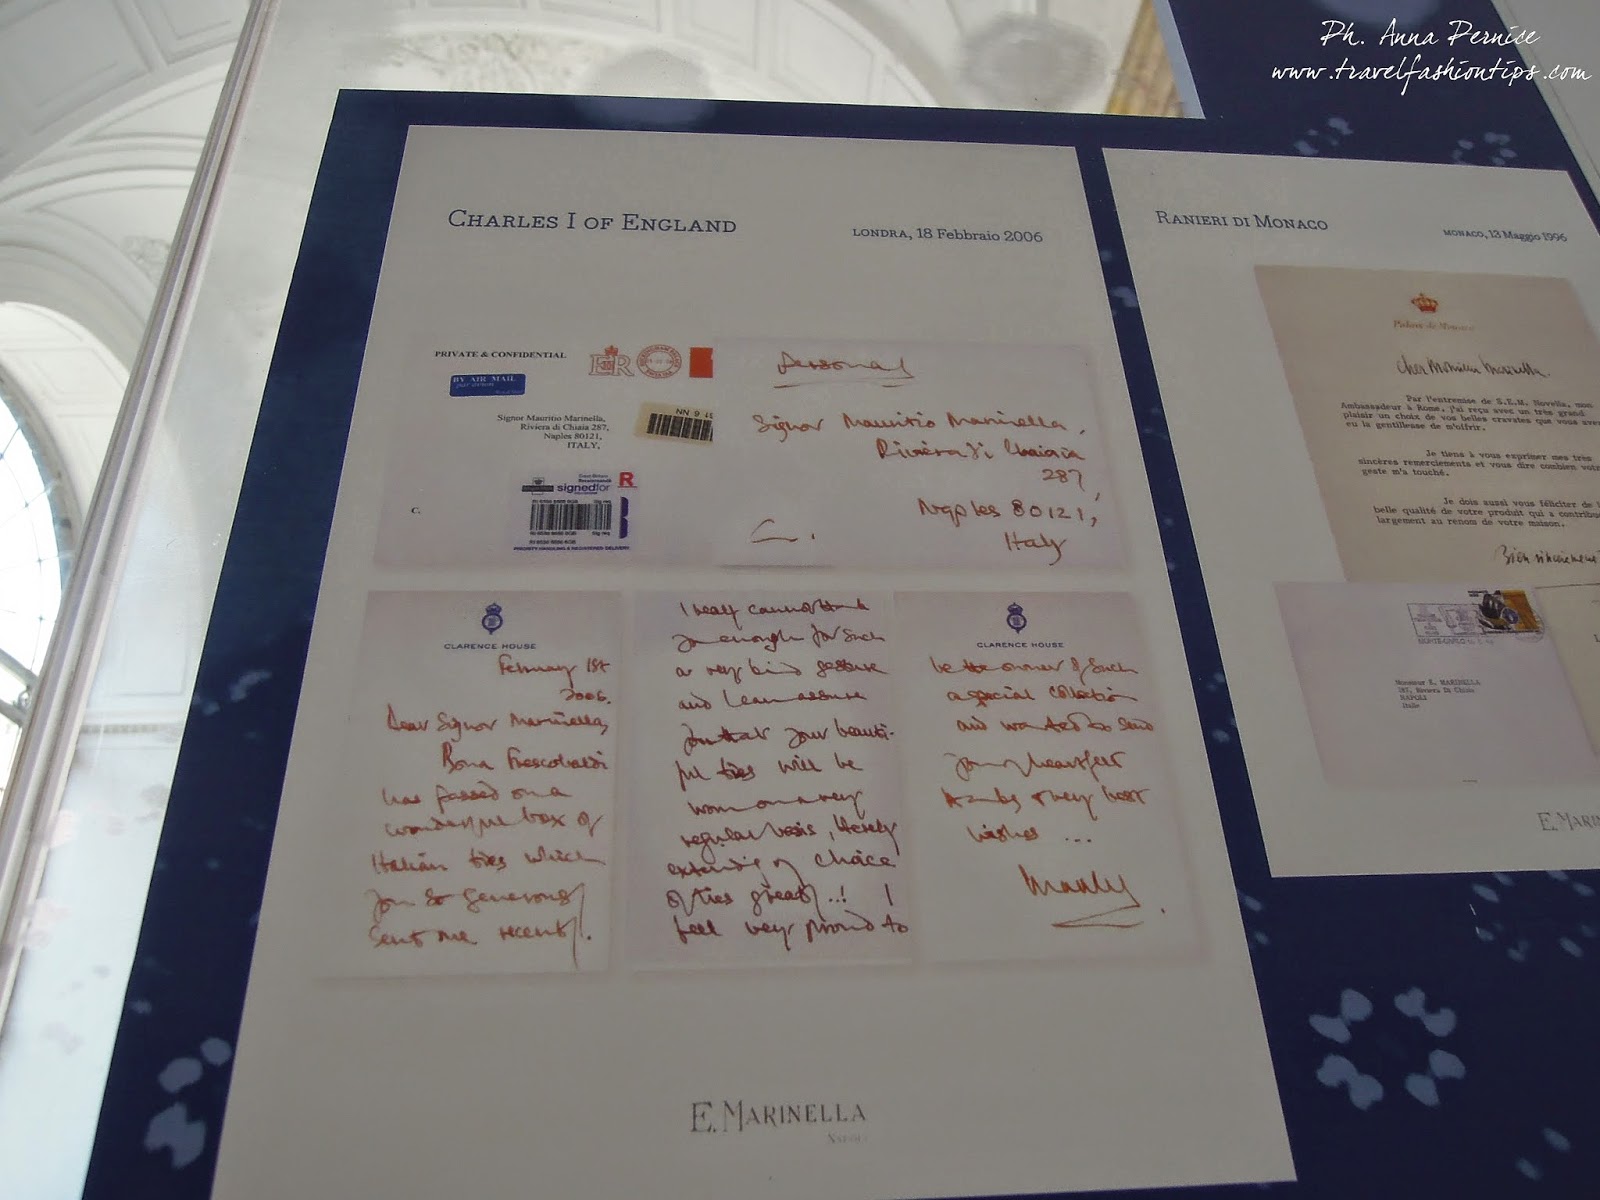 Ph. Anna Pernice
www.travelfashiontips.com
CHARLES I OF ENGLAND
LONDRA, 18 Febbraio 2006
PRIVATE & CONFIDENTIAL
BY AIR MAIL
par avion
Signor Mauritio Marinella,
Riviera di Chiaia 287,
Naples 80121,
ITALY,
NN 6 11
signedfor
R
C.
Personal
Signor Mauritio Marinella,
Riviera di Chiaia
287,
Naples 80121,
Italy
C.
CLARENCE HOUSE
February 1st
2006.
Dear Signor Marinella,
Bona Frescobaldi
has passed on a
wonderful box of
Italian ties which
you so generously
sent me recently.
I really cannot thank
you enough for such
a very kind gesture
and I can assure
you that your beauti-
ful ties will be
worn on a very
regular basis, thereby
extending my choice
of ties greatly..! I
feel very proud to
CLARENCE HOUSE
be the owner of such
a special collection
and wanted to send
you my heartfelt
thanks & very best
wishes ...
RANIERI DI MONACO
MONACO, 13 Maggio 1996
Palais de Monaco
Cher Monsieur Marinella.
Par l'entremise de S.E.M. Novella, mon
Ambassadeur à Rome, j'ai reçu avec un très grand
plaisir un choix de vos belles cravates que vous avez
eu la gentillesse de m'offrir.
Je tiens à vous exprimer mes très
sincères remerciements et vous dire combien votre
geste m'a touché.
Je dois aussi vous féliciter de
belle qualité de votre produit qui a
largement au renom de votre maison.
Bien sincèrement
Monsieur E. MARINELLA
287, Riviera Di Chiaia
NAPOLI
Italie
E. MARINELLA
NAPOLI
E. MARIN